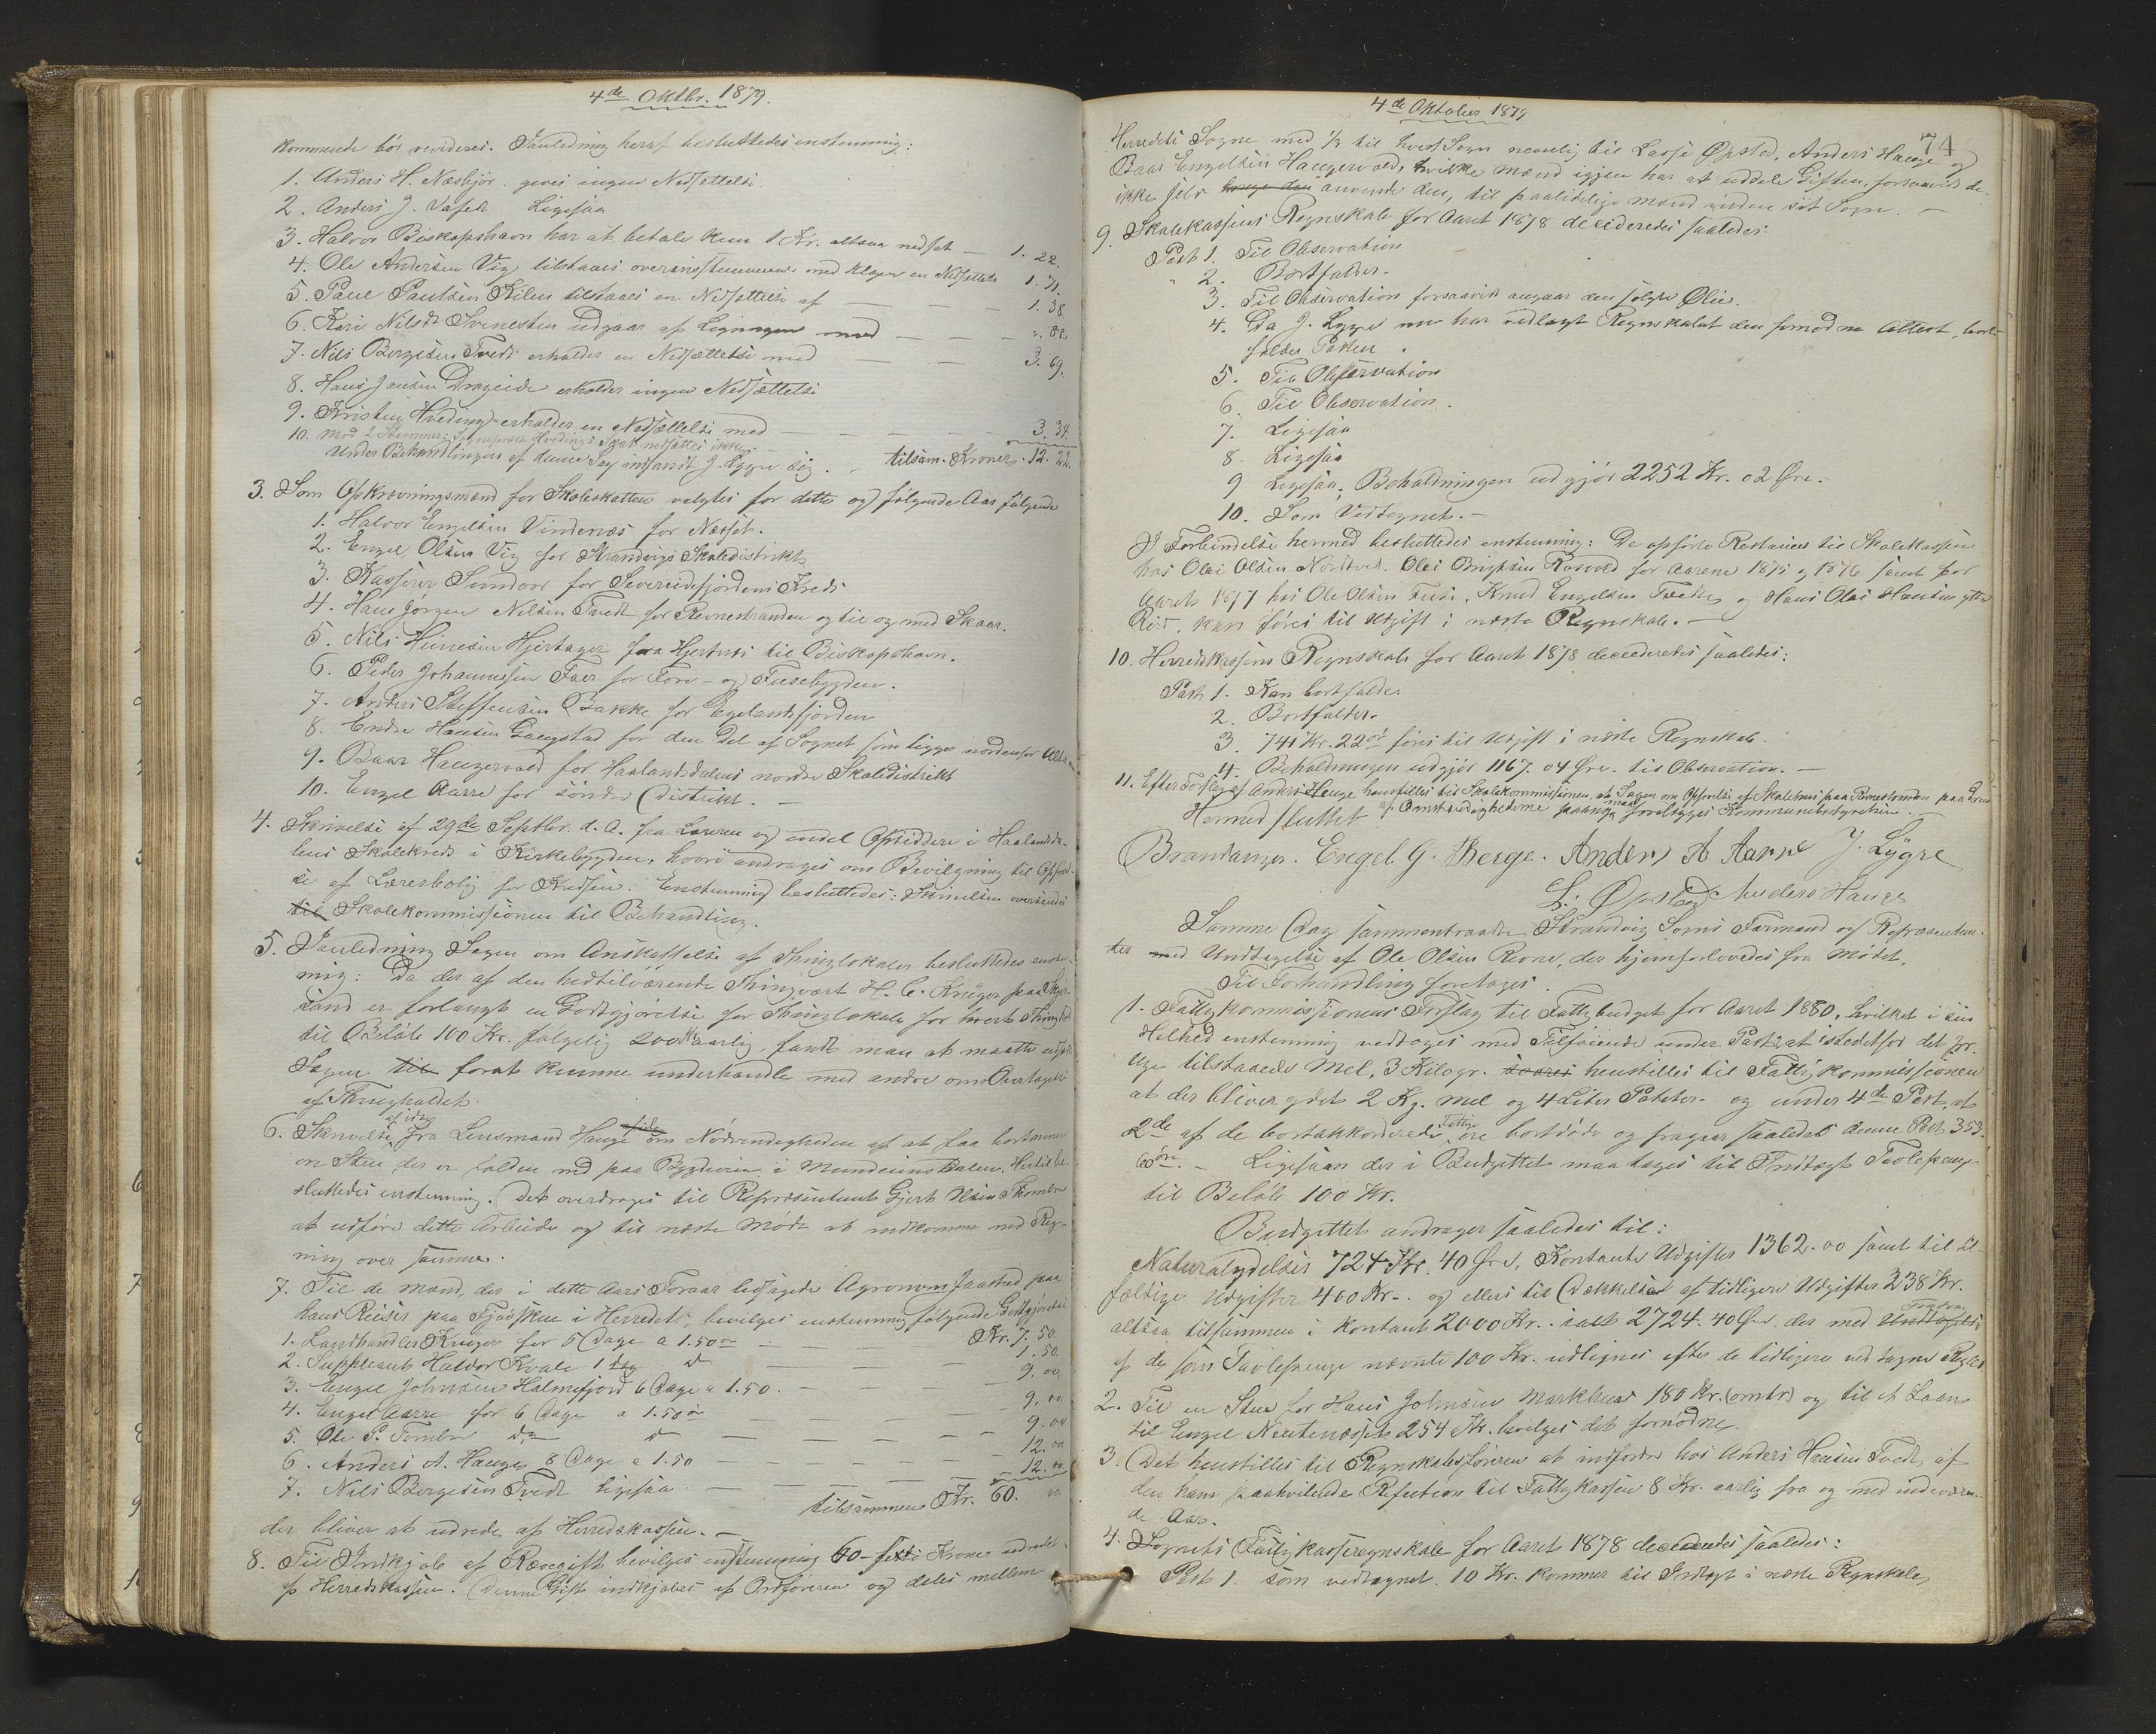 4de Oktbr. 1879.
kommende bör revideres. I anledning heraf besluttedes enstemmig:
1. Anders H. Næsbjör gives ingen Nedsættelse.
2. Anders J. Ligesaa
3. Halvor Biskopshavn har at betale kun 1 Kr. altsaa nedsat — 1. 22.
4. Ole Andersen Vig tilstaaes overensstemmende med Klagen en Nedsættelse 1. 31.
5. Paul Paulsen Kilen tilstaaes en Nedsættelse af — — 1. 38
6. Kari Nilsdt Svinesten udgaar af Ligningen med — — — ". 88.
7. Nils Börgesen Tvedt erholder en Nedsættelse med — — 3. 69.
8. Hans Jansen Drageide erholder ingen Nedsættelse
9. Kristen Hveding erholder en Nedsættelse med — — — — 3. 34.
10. Mod 2 Stemmer: Hvedings Skat nedsættes ikke.
Under Behandlingen af denne Sag indfandt J. Lygre sig. tilsam. Kroner 12. 22.
3. Som Opkrævningsmænd for Skoleskatten valgtes for dette og følgende Aar følgende
1. Halvor Engelsen Vindenæs for Næsset.
2. Engel Olsen Vig for Strandvigs Skoledistrikt
3. Kasserer Sundvor for Sævereidefjordens Kreds
4. Hans Jörgen Nilsen Tvedt for Revnestranden og til og med Skaar.
5. Nils Heinesen Hjertager fra Hjertnæs til Biskopshavn.
6. Peder Johannessen Faer for Fore- og Fusebygden.
7. Anders Steffensen Bakke for Egelandsfjorden
8. Endre Hansen Gaugstad for den Del af Sognet som ligger nordenfor
9. Baar Haugervold for Haalandsdalens nordre Skoledistrikt
10. Engel Aarre for söndre Distrikt. —
4. Skrivelse af 29de Septbr. d. A. fra Læreren og endel Opsiddere i Haalandsda-
lens Skolekreds i Kirkebygden, hvori andrages om Bevilgning til Opförel-
se af Lærerbolig for Kredsen. Enstemmig besluttedes: Skrivelsen oversendes
til Skolekommissionen til Behandling.
5. I anledning Sagen om Anskaffelse af Thinglokaler besluttedes enstem-
mig: Da der af den nedtilværende Thingvært H. C. Krüger paa
sand er forlangt en Godtgjörelse for Thinglokale for hvert Thing
til Belöb 100 Kr. fölgelig 200 Kr aarlig, fandt man at maatte udsætte
Sagen til forat kunne underhandle med andre om Overtagelse
af Thingholdet.
6. Skrivelse af idag fra Lensmand Hauge om Nödvendigheden af at faa borttaget
en Sten der er falden ned paa Bygdeveien i Mundeimsdalen. Hertil be-
sluttedes enstemmig. Det overdrages til Repræsentant Gjert Olsen
at udföre dette Arbeide og til næste Möde at indkomme med Reg-
ning over samme.
7. Til de Mænd, der i dette Aars Foraar ledsagede Agronom Jaastad paa
hans Reiser paa i Herredet, bevilges enstemmig fölgende Godtgjörelse
1. Landhandler Krüger for 5 Dage a 1.50 — Kr. 7. 50.
2. Suppleant Haldor Kvale 1 dag do — 1. 50.
3. Engel Johnsen Holmefjord 6 Dage a 1.50. — 9. 00.
4. Engel Aarre for 6 Dage a 1.50 — 9. 00.
5. Ole P. Tombre do do — 9. 00
6. Anders A. Hauge 8 Dage a 1.50 — 12. 00.
7. Nils Börgesen Tvedt ligesaa — 12. 00
tilsammen Kr. 60. 00
der bliver at udrede af Herredskassen. —
8. Til Indkjöb af Rævegift bevilges enstemmig 60 - sexti Kroner udredt
af Herredskassen. Denne Gift indkjöbes af Ordföreren og deles mellem
4de Oktober 1879
74
Herredets Sogne med 1/3 til hvert Sogn nemlig til Lasse Øpsted, Anders Hauge og
Baar Engelsen Haugervold, hvilke Mænd igjen har at uddele Giften, forsaavidt de
ikke selv bruge den anvende den, til paalidelige Mænd inden sit Sogn. —
9. Skolekassens Regnskab for Aaret 1878 decideredes saaledes:
Post 1. Til Observation
" 2. Bortfalder.
3. Til Observation forsaavidt angaar den solgte Olie.
4. Da J. Lygre nu har vedlagt Regnskabet den fornödne Attest, bort-
falder Posten.
5. Til Observation
6. Til Observation.
7. Ligesaa
8. Ligesaa
9 Ligesaa; Beholdningen udgjör 2252 Kr. 02 Øre.
10. Som Vedtegnet. —
I Forbindelse hermed besluttedes enstemmig: De opförte Restancer til Skolekassen
hos Olai Olsen Nordtvedt. Olai Brigtsen Rosvold for Aarene 1875 og 1876 samt for
Aaret 1877 hos Ole Olsen Fuse, Knud Engelsen Tvedt og Hans Olai Hansen ytre
Röd, kan föres til Udgift i næste Regnskab. —
10. Herredskassens Regnskab for Aaret 1878 decideredes saaledes:
Post 1. Kan bortfalde.
2. Bortfalder.
3. 741 Kr. 22 öre föres til Udgift i næste Regnskab.
4. Beholdningen udgjör 1167. 04 Øre. til Observation. —
11. Efter Forslag af Anders Hauge henstilles til Skolekommissionen, at Sagen om Opförelse af Skolehus paa Revnestranden paa Grund
af Omstændighederne paany maa forelægges Kommunebestyrelsen. —
Hermed sluttet
Brandanger. Engel G. Berge. Anders A Aarre J. Lygre
L. Øpsted Anders Hauge
Samme Dag sammentraadte Strandvig Sogns Formænd og Repræsentan-
ter med Undtagelse af Ole Olsen Revne, der hjemforlovedes fra Mödet.
Til Forhandling foretoges.
1. Fattigkommissionens Forslag til Fattigbudget for Aaret 1880, hvilket i sin
Helhed enstemmig vedtoges med Tilföiende under Post 2, at istedetfor det pr.
Uge tilstaaede Mel, 3 Kilogr. svares henstilles til Fattigkommissionen
at der bliver ydet 2 Kg. Mel og 4 Liter Poteter. og under 4de Post, at
2de af de bortakkorderede Fattige ere bortdöde og fragaar saaledes denne Post 353.
60 öre. — Ligesaa der i Budgettet maa tages til Indtægt Tvolepenge
til Belöb 100 Kr.
Budgettet andrager saaledes til:
Naturalydelser 724 Kr. 40 Øre, Kontante Udgifter 1362. 00 samt til til-
fældige Udgifter 400 Kr. og ellers til Dækkelse af tidligere Udgifter 238 Kr.
altsaa tilsammen i Kontant 2000 Kr. ialt 2724. 40 Øre, der med Undtagelse Fradrag
af de som Tvolepenge nævnte 100 Kr. udlignes efter de tidligere vedtagne Regler
2. Til en Stue for Hans Johnsen Markhus 180 Kr. (omtr) og til et Laan
til Engel 254 Kr. bevilges det fornödne.
3. Det henstilles til Regnskabsföreren at indfordre hos Anders Hansen Tvedt, af
den ham paahvilende Refusion til Fattigkassen 8 Kr. aarlig fra og med indeværen-
de Aar.
4. Sognets Fattigkasseregnskab for Aaret 1878 decideredes saaledes:
Post 1. som vedtegnet. 10 Kr. kommer til Indtægt i næste Regnskab,